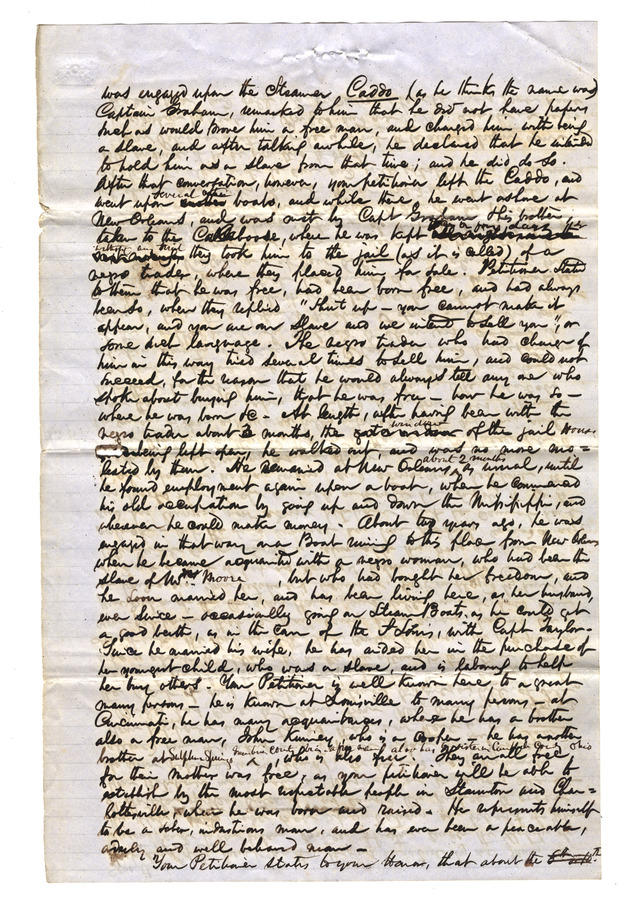 was engaged upon the Steamer Caddo (as he thinks the name was)
Captain Graham, remarked to him that he did not have papers
such as would prove him a free man, and charged him with being
a slave, and after talking awhile, he declared that he intended
to hold him as a slave from that time; and he did do so.
After that conversation, however, your petitioner left the Caddo, and
went upon several other boats, and while there he went ashore at
New Orleans, and was met by Capt Graham & his brother,
taken to the Calaboose, where he was kept
they took him to the jail (as it is called) of a
negro trader, where they placed him for sale. Petitioner stated
to them that he was free, had been born free, and had always
been so, when they replied "Shut up - you cannot make it
appear, and you are our Slave and we intend to sell you", or
some such language. The negro trader who had charge of
him in this way tried several times to sell him, and could not
succeed, for the reason that he would always tell any one who
spoke about buying him, that he was free - how he was so -
where he was born &c - At length, after having been with the
negro trader about 2 months, the window of the jail House
being left open, he walked out, and was no more mo=
lested by them. He remained at New Orleans about 2 months as usual, until
he found employment again upon a boat, when he commenced
his old occupation by going up and down the Mississippi, and
wherever he could make money. About ten years ago, he was
engaged in that way on a Boat running to this place from New Orleans
when he became acquainted with a negro woman, who had been the
slave of Mrs Moore, but who had bought her freedom, and
he soon married her, and has been living here, as her husband,
ever since - occasionally going on Steam Boats as he could get
a good berth, as in the case of the St Louis, with Capt Taylor.
Since he married his wife, he has aided her in the purchase of
her youngest child, who was a slave, and is laboring to help
her buy others. Your Petitioner is well known here to a great
many persons - he is known at Louisville to many persons - at
Cincinnati, he has many acquaintances, where he has a brother
also a free man, John Kinney, who is a Cooper - he has another
brother at Sulphur Springs, who is also free. also has a sister in County Ohio They are all free
for their mother was free, as your petitioner will be able to
establish by the most respectable people in Staunton and Char=
lottsville, where he was born and raised - He represents himself
to be a sober, industrious man, and has ever been a peaceable,
orderly and well behaved man -
Your Petitioner states to your Honor, that about the